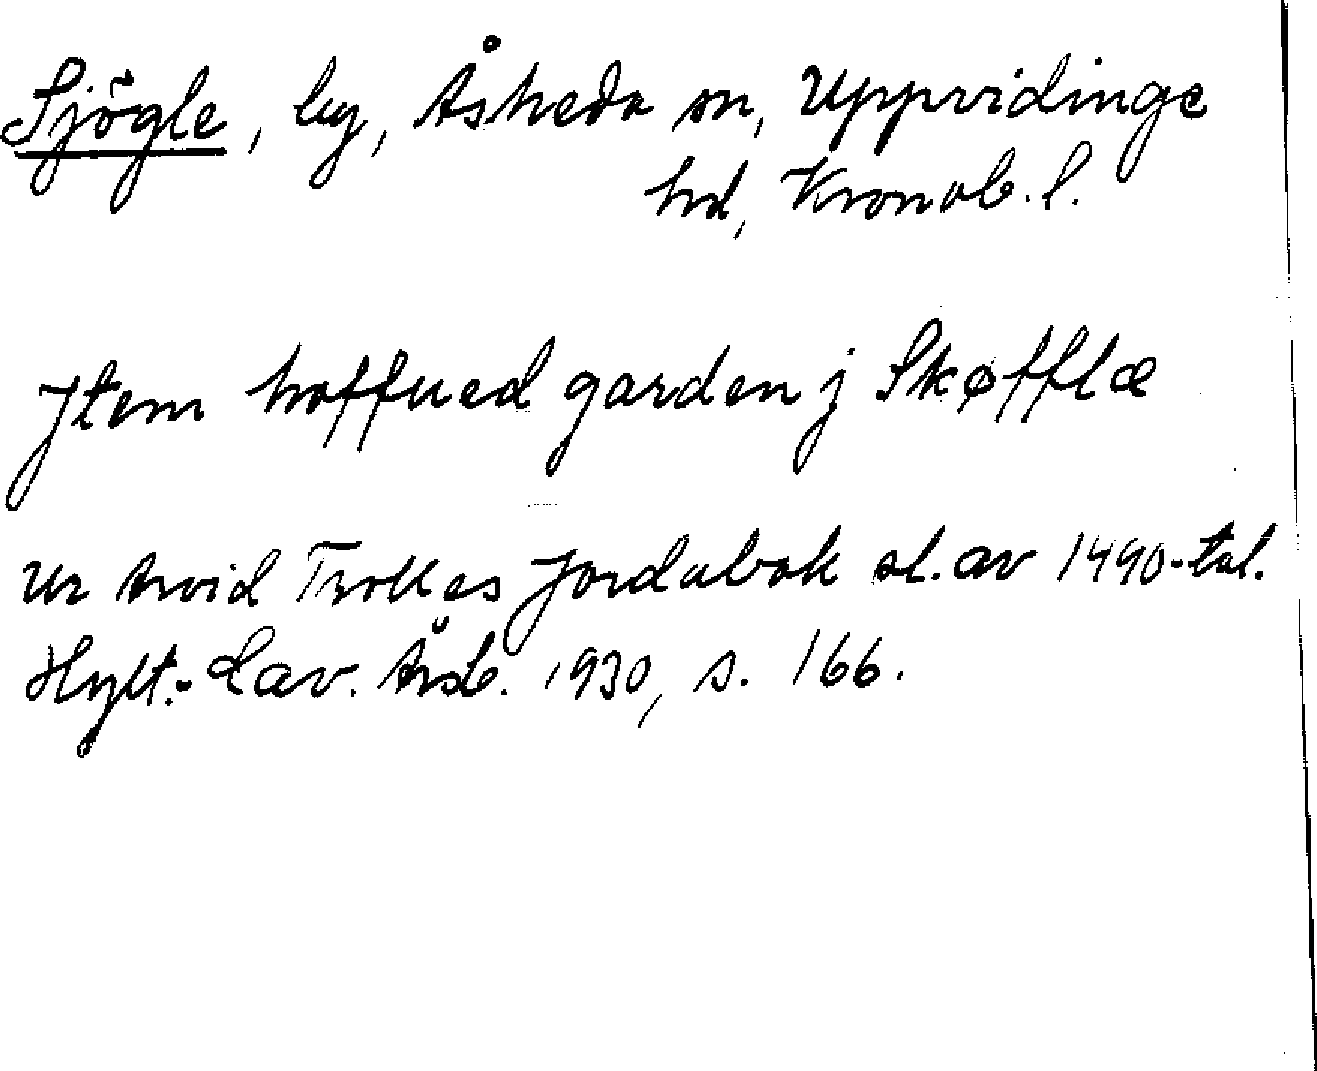 Sjögle, by, Åsheda sn, Uppvidinge
hd, Kronob. l.
Jtem hoffued garden j Skøfflæ
Ur Arvid Trolles Jordabok sl. av 1490-tal.
Hylt.-Cav. Årsb. 1930, s. 166.